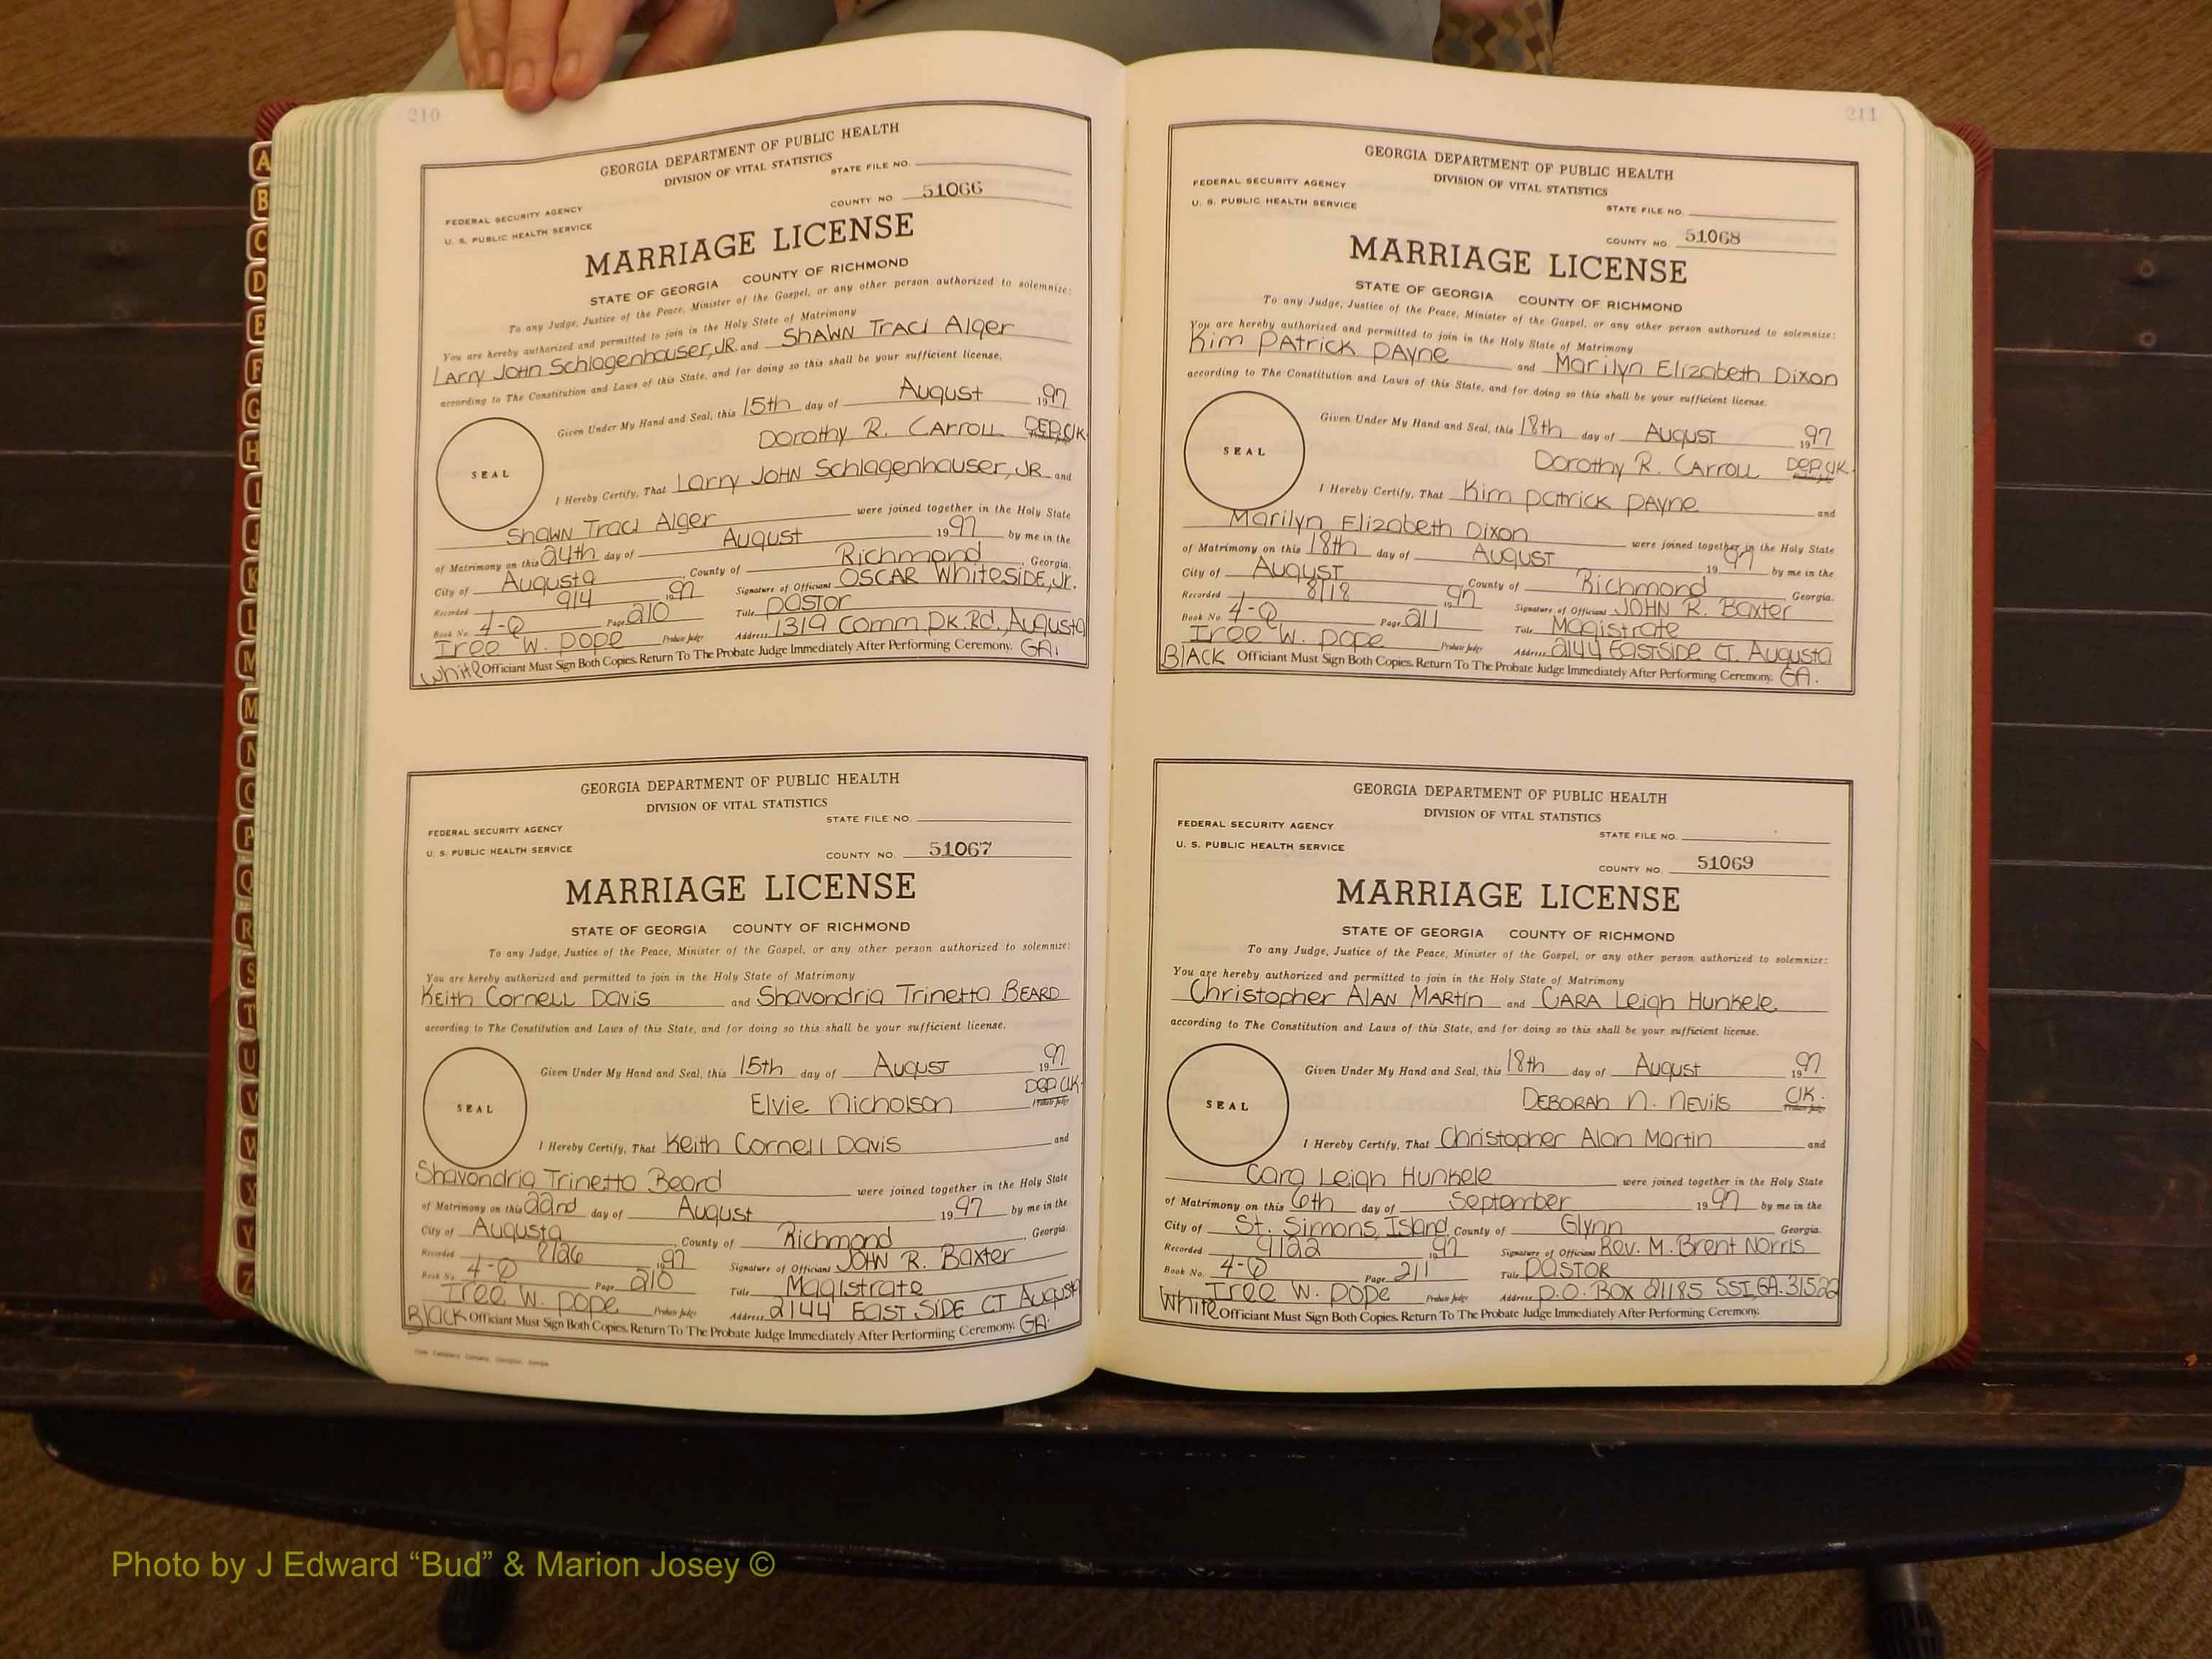 210
GEORGIA DEPARTMENT OF PUBLIC HEALTH
DIVISION OF VITAL STATISTICS
STATE FILE NO.
FEDERAL SECURITY AGENCY
COUNTY NO. 51066
U. S. PUBLIC HEALTH SERVICE
MARRIAGE LICENSE
STATE OF GEORGIA COUNTY OF RICHMOND
To any Judge, Justice of the Peace, Minister of the Gospel, or any other person authorized to solemnize:
You are hereby authorized and permitted to join in the Holy State of Matrimony
Larry John Schlagenhauser, JR. and Shawn Traci Alger
according to The Constitution and Laws of this State, and for doing so this shall be your sufficient license.
Given Under My Hand and Seal, this 15th day of August 1997
Dorothy R. Carroll DEP. Clk.
SEAL
I Hereby Certify, That Larry John Schlagenhauser, JR and
Shawn Traci Alger were joined together in the Holy State
of Matrimony on this 24th day of August 1997 by me in the
City of Augusta, County of Richmond, Georgia.
Recorded 9/4 1997 Signature of Officiant Oscar Whiteside, Jr.
Book No. 4-Q Page 210 Title Pastor
Iree W. Pope Probate Judge Address 1319 Comm Pk. Rd., Augusta
White Officiant Must Sign Both Copies. Return To The Probate Judge Immediately After Performing Ceremony. GA.
GEORGIA DEPARTMENT OF PUBLIC HEALTH
DIVISION OF VITAL STATISTICS
STATE FILE NO.
FEDERAL SECURITY AGENCY
U. S. PUBLIC HEALTH SERVICE
COUNTY NO. 51067
MARRIAGE LICENSE
STATE OF GEORGIA COUNTY OF RICHMOND
To any Judge, Justice of the Peace, Minister of the Gospel, or any other person authorized to solemnize:
You are hereby authorized and permitted to join in the Holy State of Matrimony
Keith Cornell Davis and Shavondria Trinetta Beard
according to The Constitution and Laws of this State, and for doing so this shall be your sufficient license.
Given Under My Hand and Seal, this 15th day of August 1997
Elvie Nicholson Dep. Clk. Probate Judge
SEAL
I Hereby Certify, That Keith Cornell Davis and
Shavondria Trinetta Beard were joined together in the Holy State
of Matrimony on this 22nd day of August 1997 by me in the
City of Augusta, County of Richmond, Georgia.
Recorded 8/26 1997 Signature of Officiant John R. Baxter
Book No. 4-Q Page 210 Title Magistrate
Iree W. Pope Probate Judge Address 2144 East Side CT Augusta
Black Officiant Must Sign Both Copies. Return To The Probate Judge Immediately After Performing Ceremony. GA.
211
GEORGIA DEPARTMENT OF PUBLIC HEALTH
DIVISION OF VITAL STATISTICS
FEDERAL SECURITY AGENCY
U. S. PUBLIC HEALTH SERVICE
STATE FILE NO.
COUNTY NO. 51068
MARRIAGE LICENSE
STATE OF GEORGIA COUNTY OF RICHMOND
To any Judge, Justice of the Peace, Minister of the Gospel, or any other person authorized to solemnize:
You are hereby authorized and permitted to join in the Holy State of Matrimony
Kim Patrick Payne and Marilyn Elizabeth Dixon
according to The Constitution and Laws of this State, and for doing so this shall be your sufficient license.
Given Under My Hand and Seal, this 18th day of August 1997
Dorothy R. Carroll Dep. Clk.
SEAL
I Hereby Certify, That Kim Patrick Payne and
Marilyn Elizabeth Dixon were joined together in the Holy State
of Matrimony on this 18th day of August 1997 by me in the
City of August County of Richmond Georgia.
Recorded 8/18 1997 Signature of Officiant John R. Baxter
Book No. 4-Q Page 211 Title Magistrate
Iree W. Pope Probate Judge Address 2144 Eastside CT. Augusta
Black Officiant Must Sign Both Copies. Return To The Probate Judge Immediately After Performing Ceremony. GA.
GEORGIA DEPARTMENT OF PUBLIC HEALTH
DIVISION OF VITAL STATISTICS
FEDERAL SECURITY AGENCY
STATE FILE NO.
U. S. PUBLIC HEALTH SERVICE
COUNTY NO. 51069
MARRIAGE LICENSE
STATE OF GEORGIA COUNTY OF RICHMOND
To any Judge, Justice of the Peace, Minister of the Gospel, or any other person authorized to solemnize:
You are hereby authorized and permitted to join in the Holy State of Matrimony
Christopher Alan Martin and Cara Leigh Hunkele
according to The Constitution and Laws of this State, and for doing so this shall be your sufficient license.
Given Under My Hand and Seal, this 18th day of August 1997
Deborah N. Nevils Clk.
SEAL
I Hereby Certify, That Christopher Alan Martin and
Cara Leigh Hunkele were joined together in the Holy State
of Matrimony on this 6th day of September 1997 by me in the
City of St. Simons Island, County of Glynn Georgia.
Recorded 9/22 1997 Signature of Officiant Rev. M. Brent Norris
Book No. 4-Q Page 211 Title Pastor
Iree W. Pope Probate Judge Address P.O. Box 21185 SSI, GA. 31522
White Officiant Must Sign Both Copies. Return To The Probate Judge Immediately After Performing Ceremony.
A
B
C
D
E
F
G
H
I
J
K
L
M
M
N
O
P
Q
R
S
T
U
V
W
X
Y
Z
Photo by J Edward “Bud” & Marion Josey ©